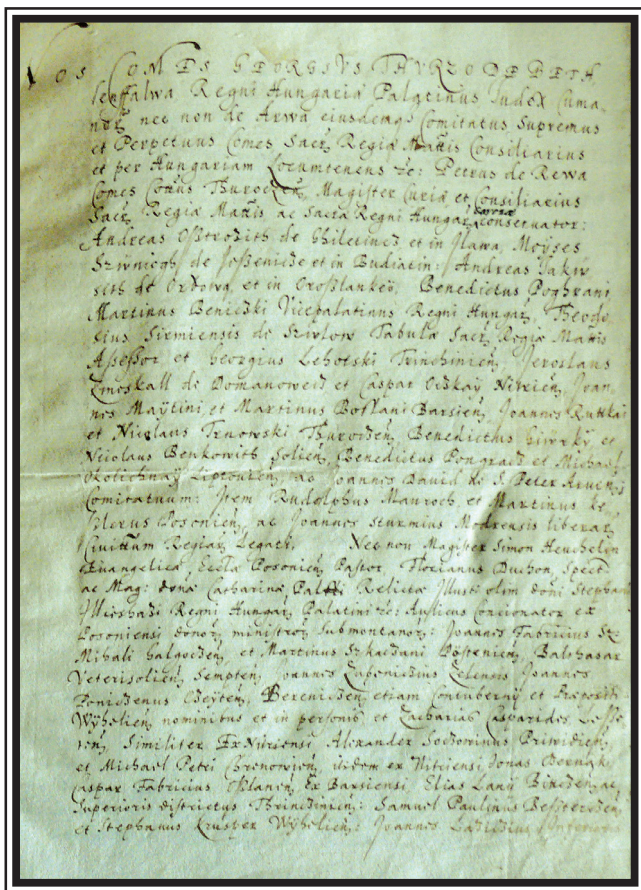 NOS COMES GEORGIVS THVRZO DE BETH
lenffalwa Regni Hungariæ Palatinus Iudex Cuma
nor, nec non de Arwa eiusdemq Comitatus Supremus
et Perpetuus Comes Sacr Regiæ Mattis Consiliarius
et per Hungariam Locumtenens etc: Petrus de Rewa
Comes Comitatus Thurocien, Magister Curiæ et Consiliarius
Sacr Regiæ Mattis ac Sacræ Regni Hungar Coronæ conseruator:
Andreas Osztrosith de Ghiletincz et in Ilawa, Moyses
Szwniogh de Jessenicze et in Budiatin: Andreas Jakw
sith de Ordowa et in Oroszlankew, Benedictus Poghrani
Martinus Beniczki Vicepalatinus Regni Hungar, Theodo
sius Sirmiensis de Szwlow Tabulæ Sacr Regiæ Mattis
Assessor et Georgius Lehotski Trinchinien, Jeroslaus
Zmeskall de Domanowecz et Caspar Oczkay Nitrien, Joan
nes Maytini et Martinus Bossani Barsien, Joannes Ruttkai
et Nicolaus Trnowski Thuroczen, Benedictus et
Nicolaus Benkowith Solien, Benedictus Pongracz et Michael
Okolichnay Liptouien, ac Joannes Dauid de S. Peter Aruen,
Comitatuum: Item Rudolphus Mauroch et Martinus Ke
slerus Posonien, ac Joannes Sturmius Modrensis liberar
Ciuittum Regiar Legati. Nec non Magister Simon Heuchelin
Euangelicæ Eccla Posonien Pastor, Florianus Duchon, Spect
ac Mag: donæ Catharinæ Palffi Relictæ Illust olim doni Stephani
Illieshazi Regni Hungar Palatini etc: Aulicus Concionator ex
Posoniensi donor, ministror Submontanor: Joannes Fabricius Sz
Mihali halwoczen, et Martinus Postenien, Balthasar
Veterisolien, Sempten, Joannes Zabenidius Zelensis Joannes
Poniczenus Czeyten, Bereniczen, etiam Contuberny et Præpositi
Wyhelien nominitus et in personis, et Zacharias Casparides Lesse
ten, Similiter Ex Nitriensi Alexander Sochowinus Priwidien,
et Michael Petri Cbrenowien, itidem ex Nitriensi Jonas Bernaki
Caspar Fabricius Oslanien, Ex Barsiensi, Elias Lany Biczen, ac
Superioris districtus Thrinchinien: Samuel Paulinus Beszterczen
et Stephanus Kruspier Wyhelien: Joannes Lazicius Inferioris